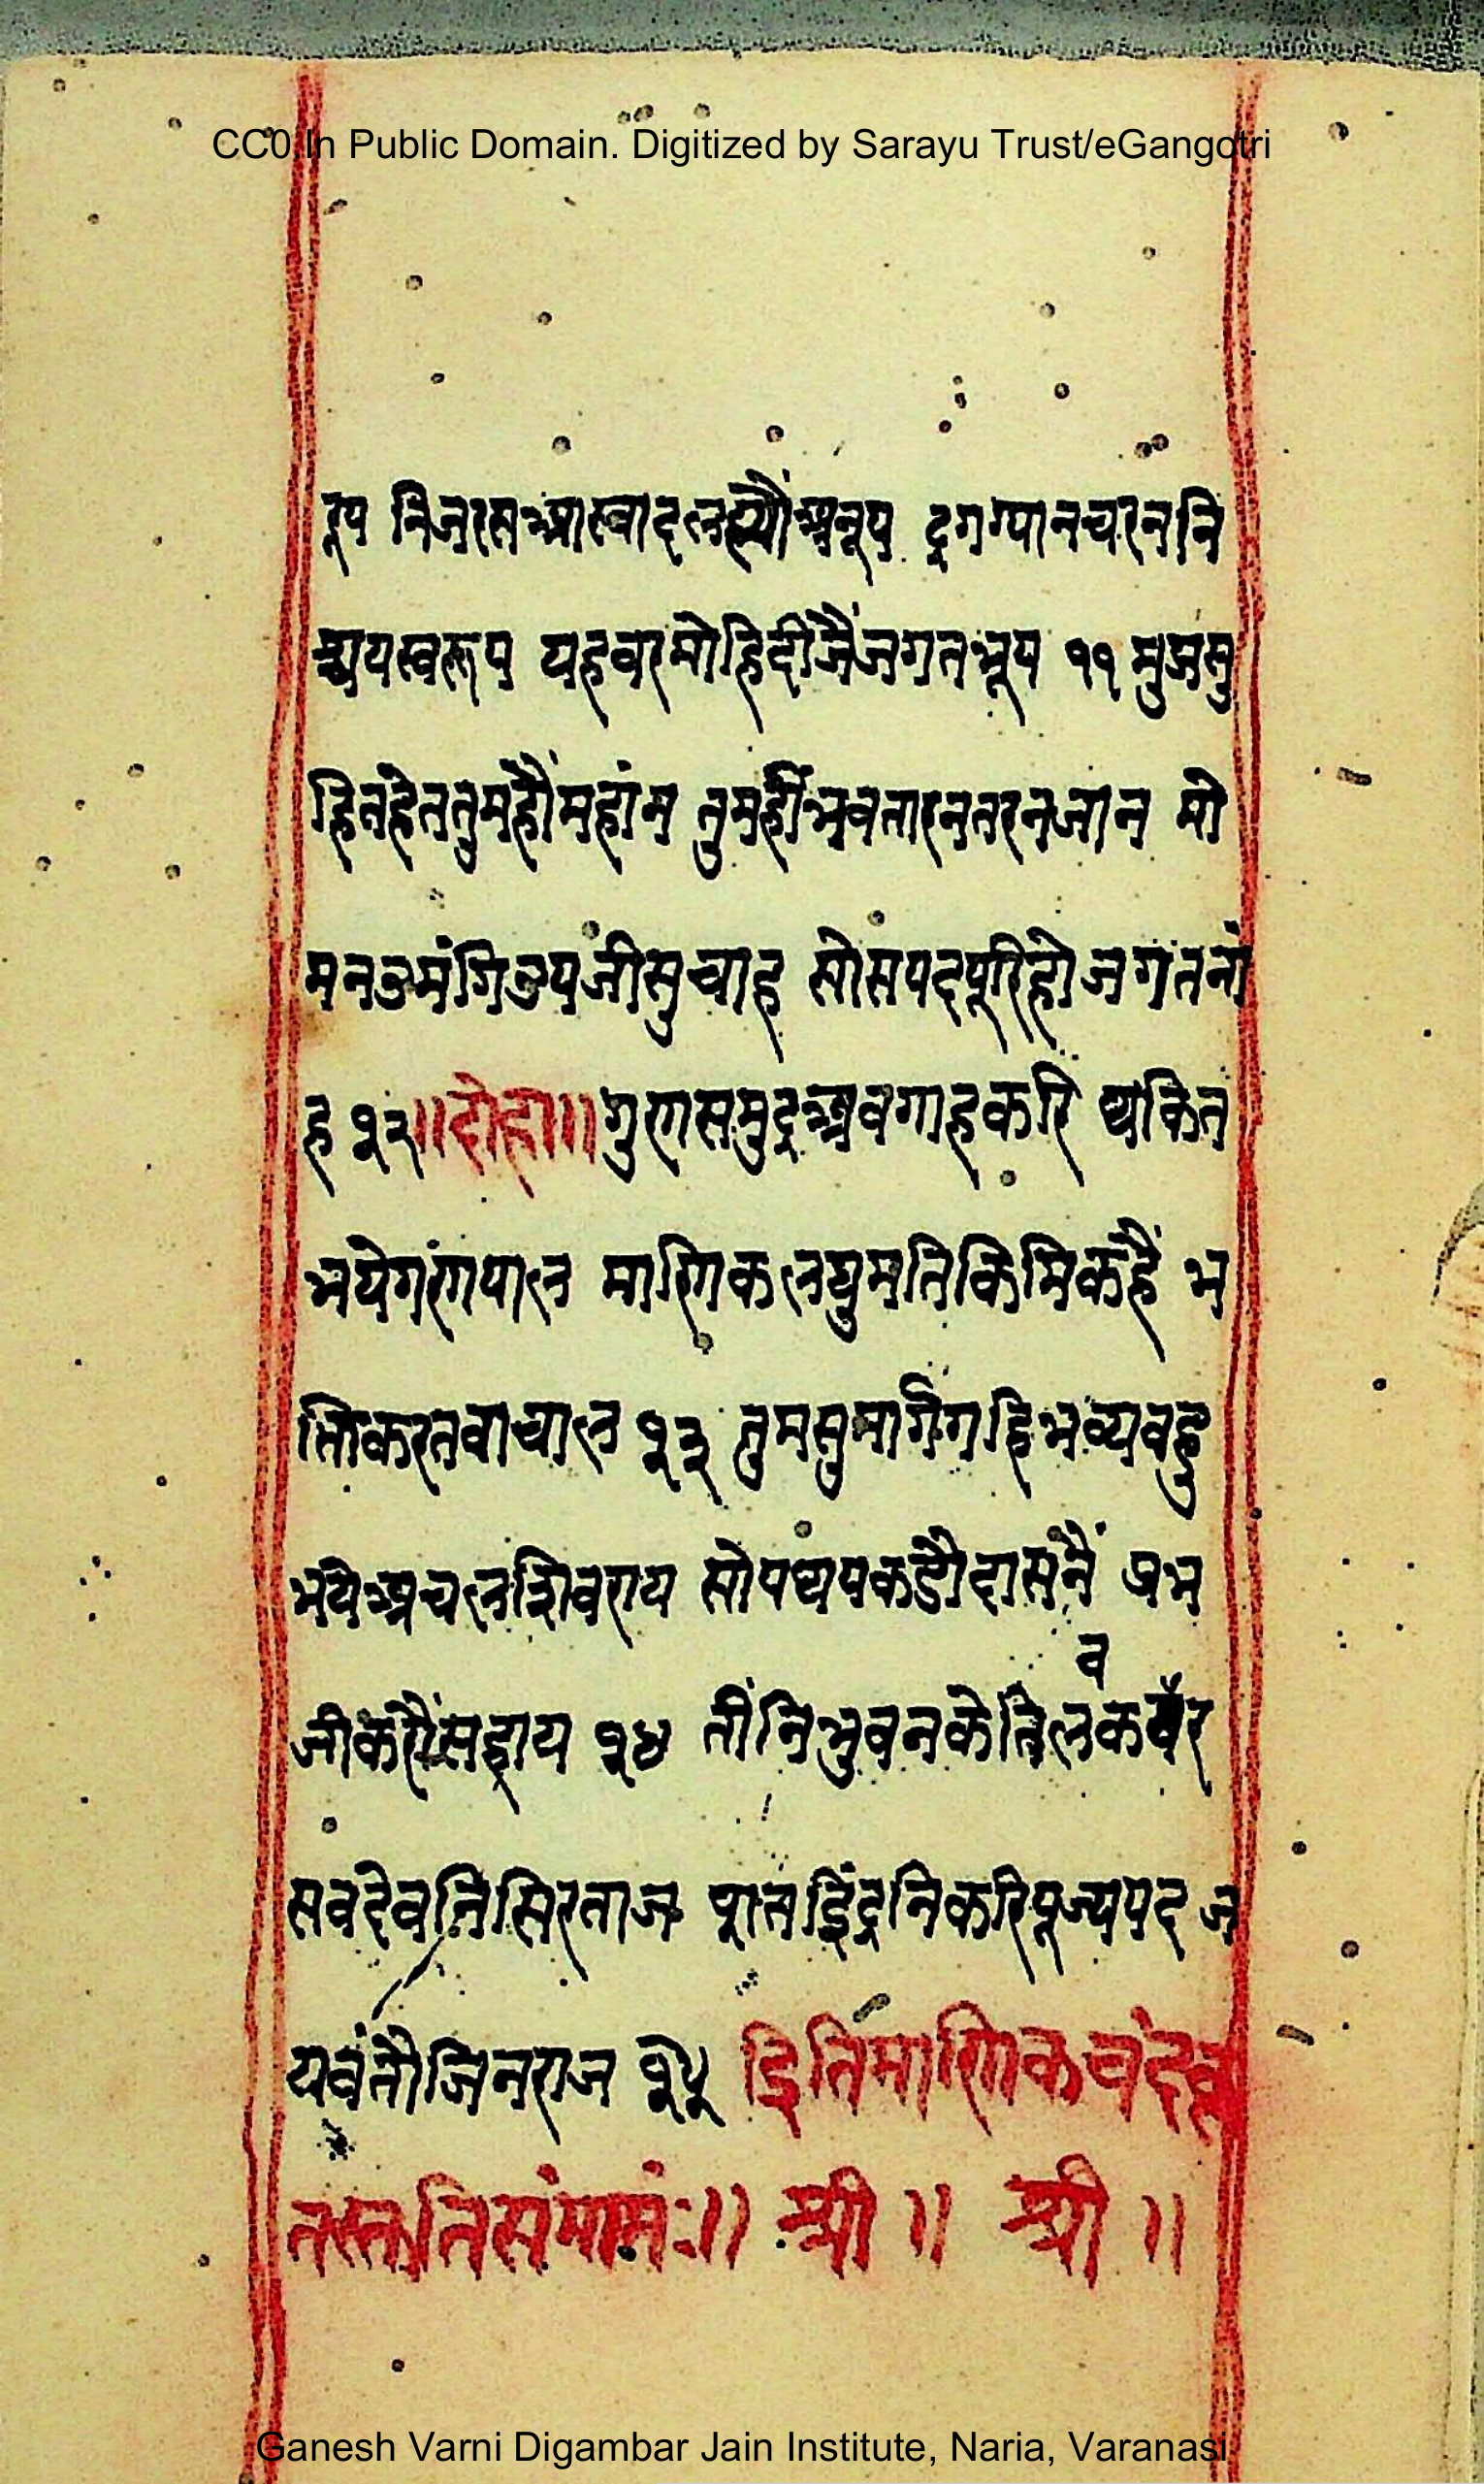 CC0.In Public Domain. Digitized by Sarayu Trust/eGangotri
रूप निजरसआस्वादलह्यौंअनूप दृगग्यानचरननि
श्चयस्वरूप यहवरमोहिदीजैंजगतभूप ११ मुझसु
हितहेततुमहौंमहांन तुमहींभवतारनतरनजांन मो
मनउमंगिउपजीसुचाह सोसपदपूरिहोजगतनां
ह १२॥दोहा॥गुणसमुद्रअवगाहकरि थकित
भयेगणपाल माणिकलघुमतिकिमिकहैं भ
क्तिकरतवाचाल १३ तुमसुमार्गगहिभव्यबहु
भयेअचलशिवराय सोपथपकडौदासनैं प्रभ
जीकरौंसहाय १४ तींनिभुवनकेतिलकवर
सवदेवनिसिरताज षातइिंद्रनिकरिपूज्यपद ज
यवंतौजिनराज १५ इितिमाणिकचंदकृ
तस्तुतिसंपामं:॥ श्री ॥ श्री ॥
Ganesh Varni Digambar Jain Institute, Naria, Varanasi